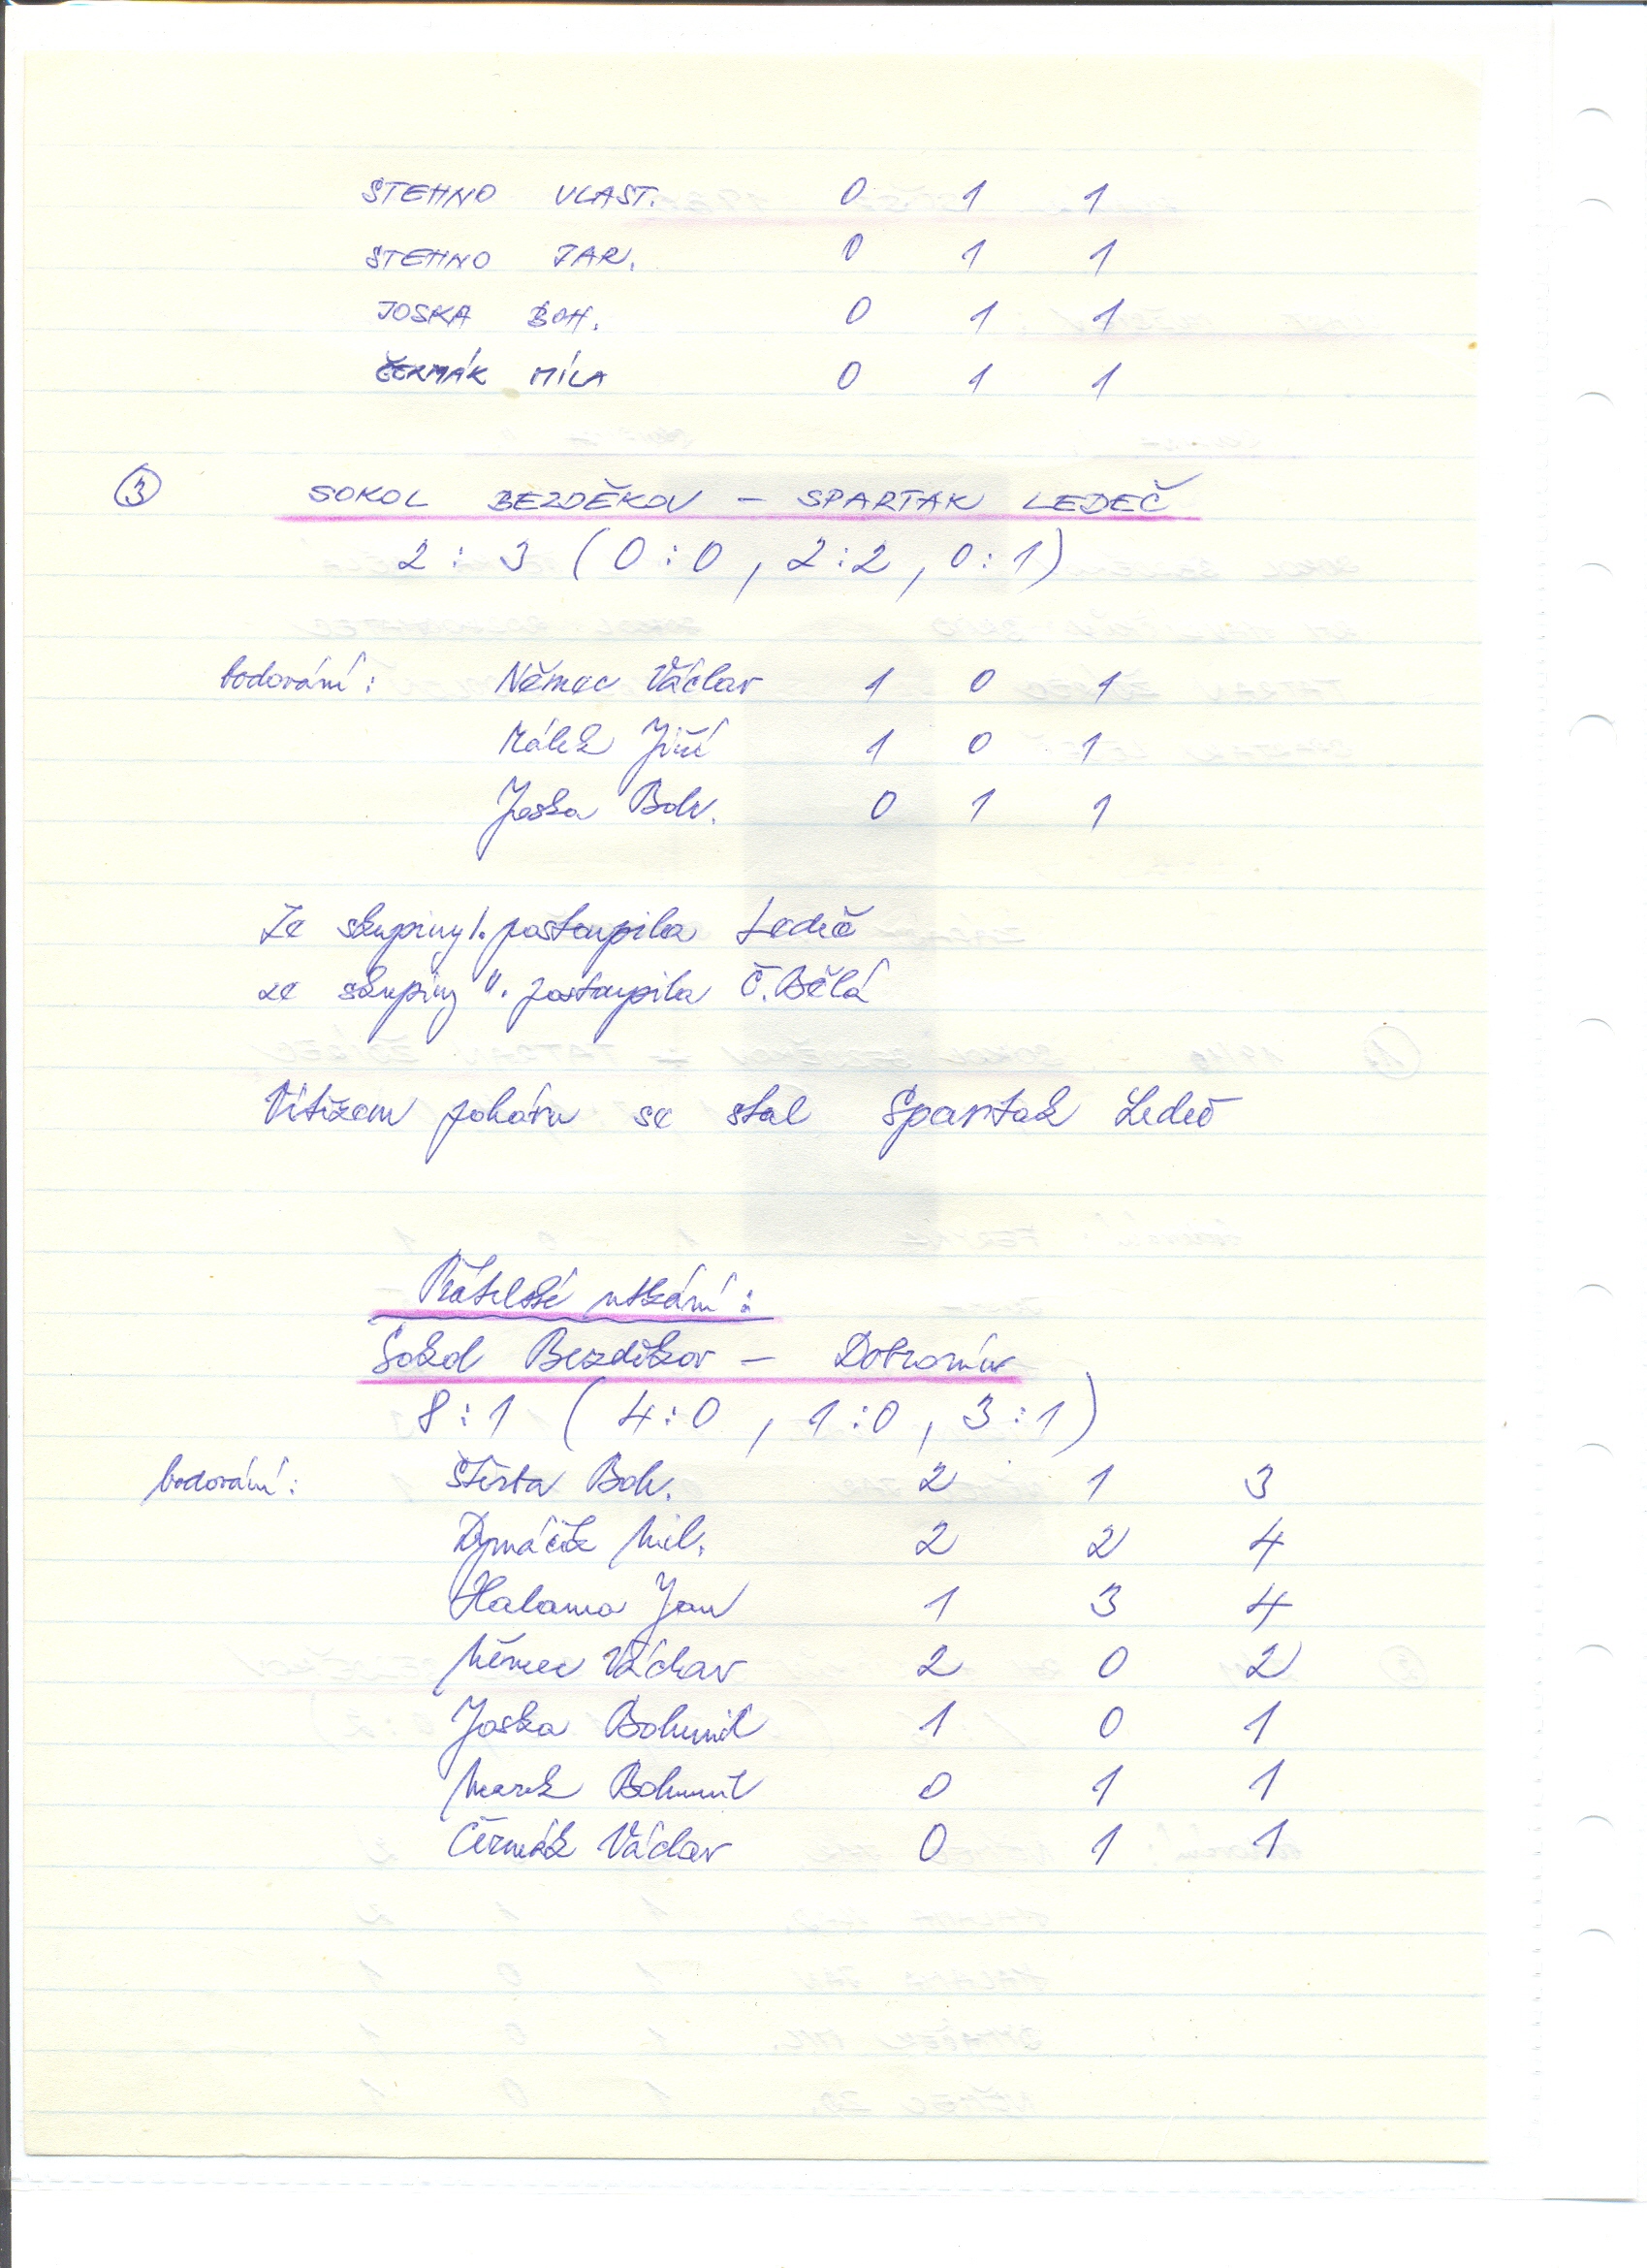 STEHNO VLAST. 0 1 1
STEHNO JAR. 0 1 1
JOSKA BOH. 0 1 1
ČERMÁK MÍLA 0 1 1
③ SOKOL BEZDĚKOV – SPARTAK LEDEČ
2 : 3 ( 0 : 0 , 2 : 2 , 0 : 1 )
bodování : Němec Václav 1 0 1
Málek Jiří 1 0 1
Joska Boh. 0 1 1
Ze skupiny I. postoupila Ledeč
ze skupiny II. postoupila Č. Bělá
Vítězem poháru se stal Spartak Ledeč
Přátelské utkání :
Sokol Bezděkov – Dobromír
8 : 1 ( 4 : 0 , 1 : 0 , 3 : 1 )
bodování : Boh. 2 1 3
Dymáček Mil. 2 2 4
Halama Jan 1 3 4
Němec Václav 2 0 2
Joska Bohumil 1 0 1
Marek Bohumil 0 1 1
Čermák Václav 0 1 1